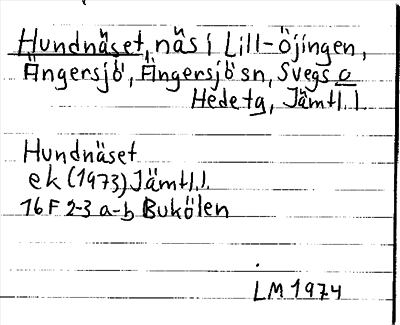 Hundnäset, näs i Lill-Öjingen,
Ängersjö, Ängersjö sn, Svegs o
Hede tg, Jämtl. l.
Hundnäset
ek (1973) Jämtl. l.
16 F 2-3 a-b Bukölen
LM 1974